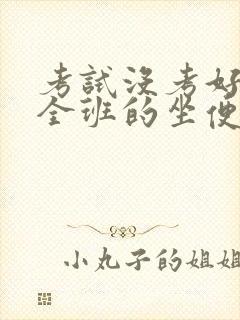 考試沒考好
全班的坐便
小丸子的姐姐